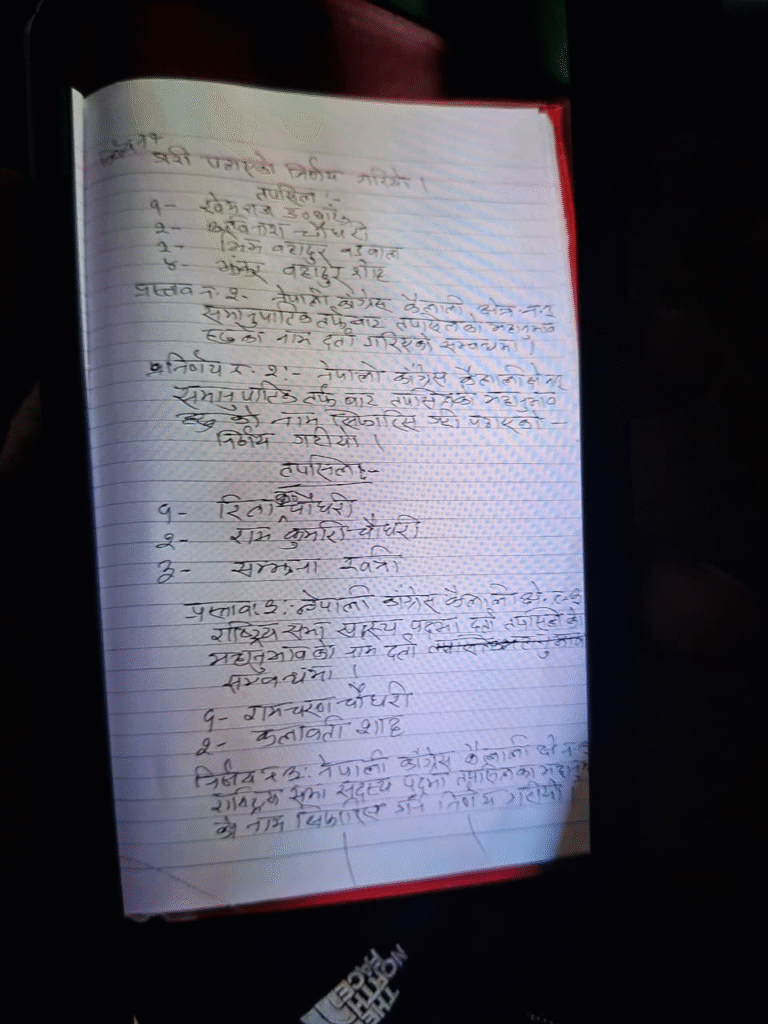 निर्णय नं १
गरी पठाएको निर्णय गरियो ।
तपसिल :-
१-
२- चौधरी
३- बहादुर
४- बहादुर शाह
प्रस्ताव नं. २- नेपाली कांग्रेस कैलाली क्षेत्र नं.
समानुपातिक तर्फबाट तपसिलको महानुभाव
हरुको नाम दर्ता गरिएको सम्बन्धमा ।
निर्णय नं. २:- नेपाली कांग्रेस कैलाली क्षे नं
समानुपातिक तर्फ बाट तपसिलका महानुभाव
हरु को नाम सिफारिस गरी पठाएको -
निर्णय गरीयो ।
तपसिल :-
१- रिता चौधरी
२- राम कुमारी चौधरी
३- सम्झना खत्री
प्रस्ताव ३:- नेपाली कांग्रेस कैलाली क्षे. नं. ३
राष्ट्रिय सभा सदस्य पदमा दर्ता तपसिलको
महानुभावको नाम दर्ता
सम्बन्धमा ।
१- रामचरन चौधरी
२- कलावती शाह
निर्णय नं ३: नेपाली कांग्रेस कैलाली क्षे नं ३
राष्ट्रिय सभा सदस्य पदमा तपसिलका
को नाम सिफारिस गर्ने निर्णय गरीयो
THE
NORTH
FACE